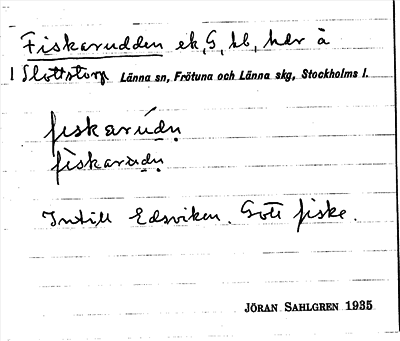 Fiskarudden ek, G, bl, här å
1 Slottstorp Länna sn, Frötuna och Länna skg, Stockholms l.
fiskarúdṇ
fìskarudṇ
Intill Edsviken. Gott fiske.
JÖRAN SAHLGREN 1935